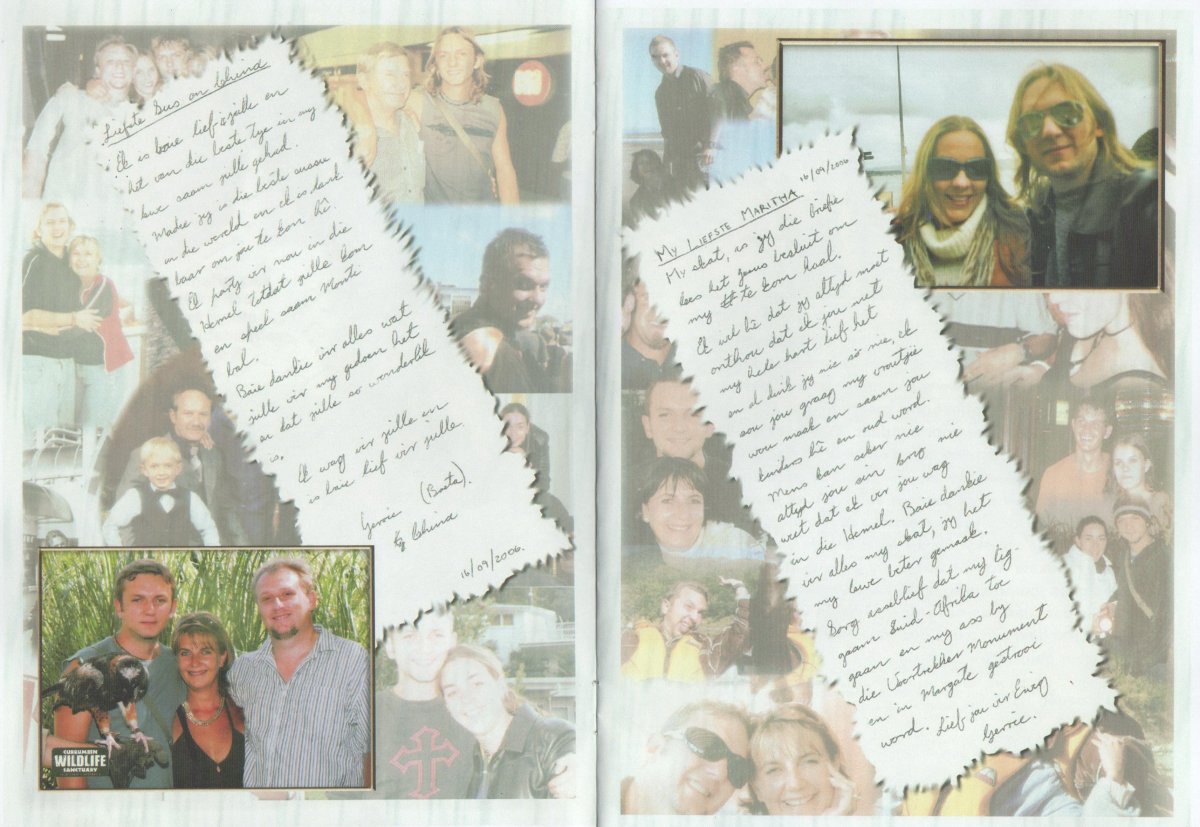 Liefste Sus en Chind
Ek is baie lief vir julle en
het van die beste tye in my
lewe saam julle gehad.
Madie jy is die beste sussie
in die wereld en ek is dank
baar om jou te kon hê
Ek party vir nou in die
Hemel totdat julle kom
en speel saam Monte
bal.
Baie dankie vir alles wat
julle vir my gedoen het
en dat julle so wonderlik
is.
Ek wag vir julle en
is baie lief vir julle.
Gerrie (Boeta).
Chind
16/09/2006.
CURRUMBIN
WILDLIFE
SANCTUARY
16/09/2006
MY LIEFSTE MARITHA.
My skat, as jy die briefie
lees het Jesus besluit om
my te kom haal.
Ek wil hê dat jy altyd moet
onthou dat ek jou met
my hele hart lief het
en al dink jy nie so nie, ek
sou jou graag my vroutjie
wou maak en saam jou
kinders hê en oud word.
Mens kan seker nie
altyd jou sin kry nie
weet dat ek vir jou wag
in die Hemel. Baie dankie
vir alles my skat, jy het
my lewe beter gemaak.
Sorg asseblief dat my lig
gaam Suid-Afrika toe
gaan en my ass by
die Voortrekker Monument
en in Margate gestrooi
word. Lief jou vir Ewig
Gerrie.